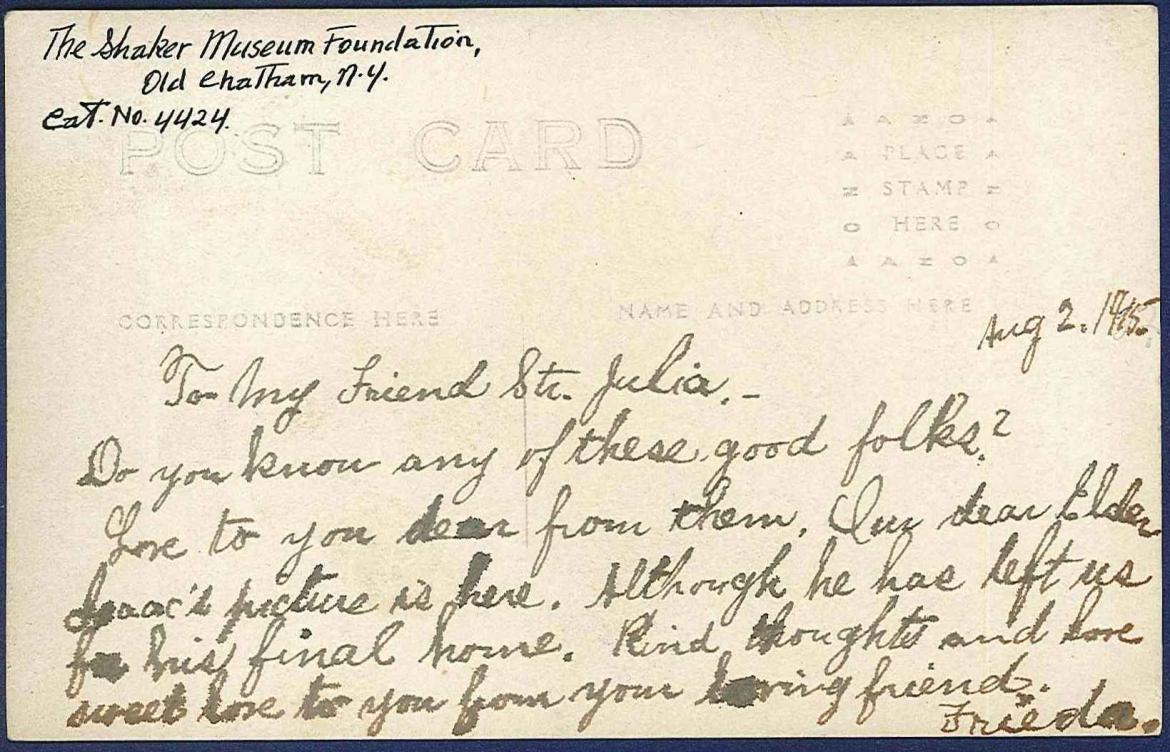 The Shaker Museum Foundation,
Old Chatham, N.Y.
Cat. No. 4424.
POST CARD
AZO
PLACE
STAMP
HERE
AZO
CORRESPONDENCE HERE
NAME AND ADDRESS HERE
Aug 2. 1915.
To My Friend Str. Julia.-
Do you know any of these good folks?
Love to you dear from them. Our dear Elder
Isaac's picture is here. Although he has left us
for his final home. Kind thoughts and love
sweet love to you from your loving friend.
Frieda.